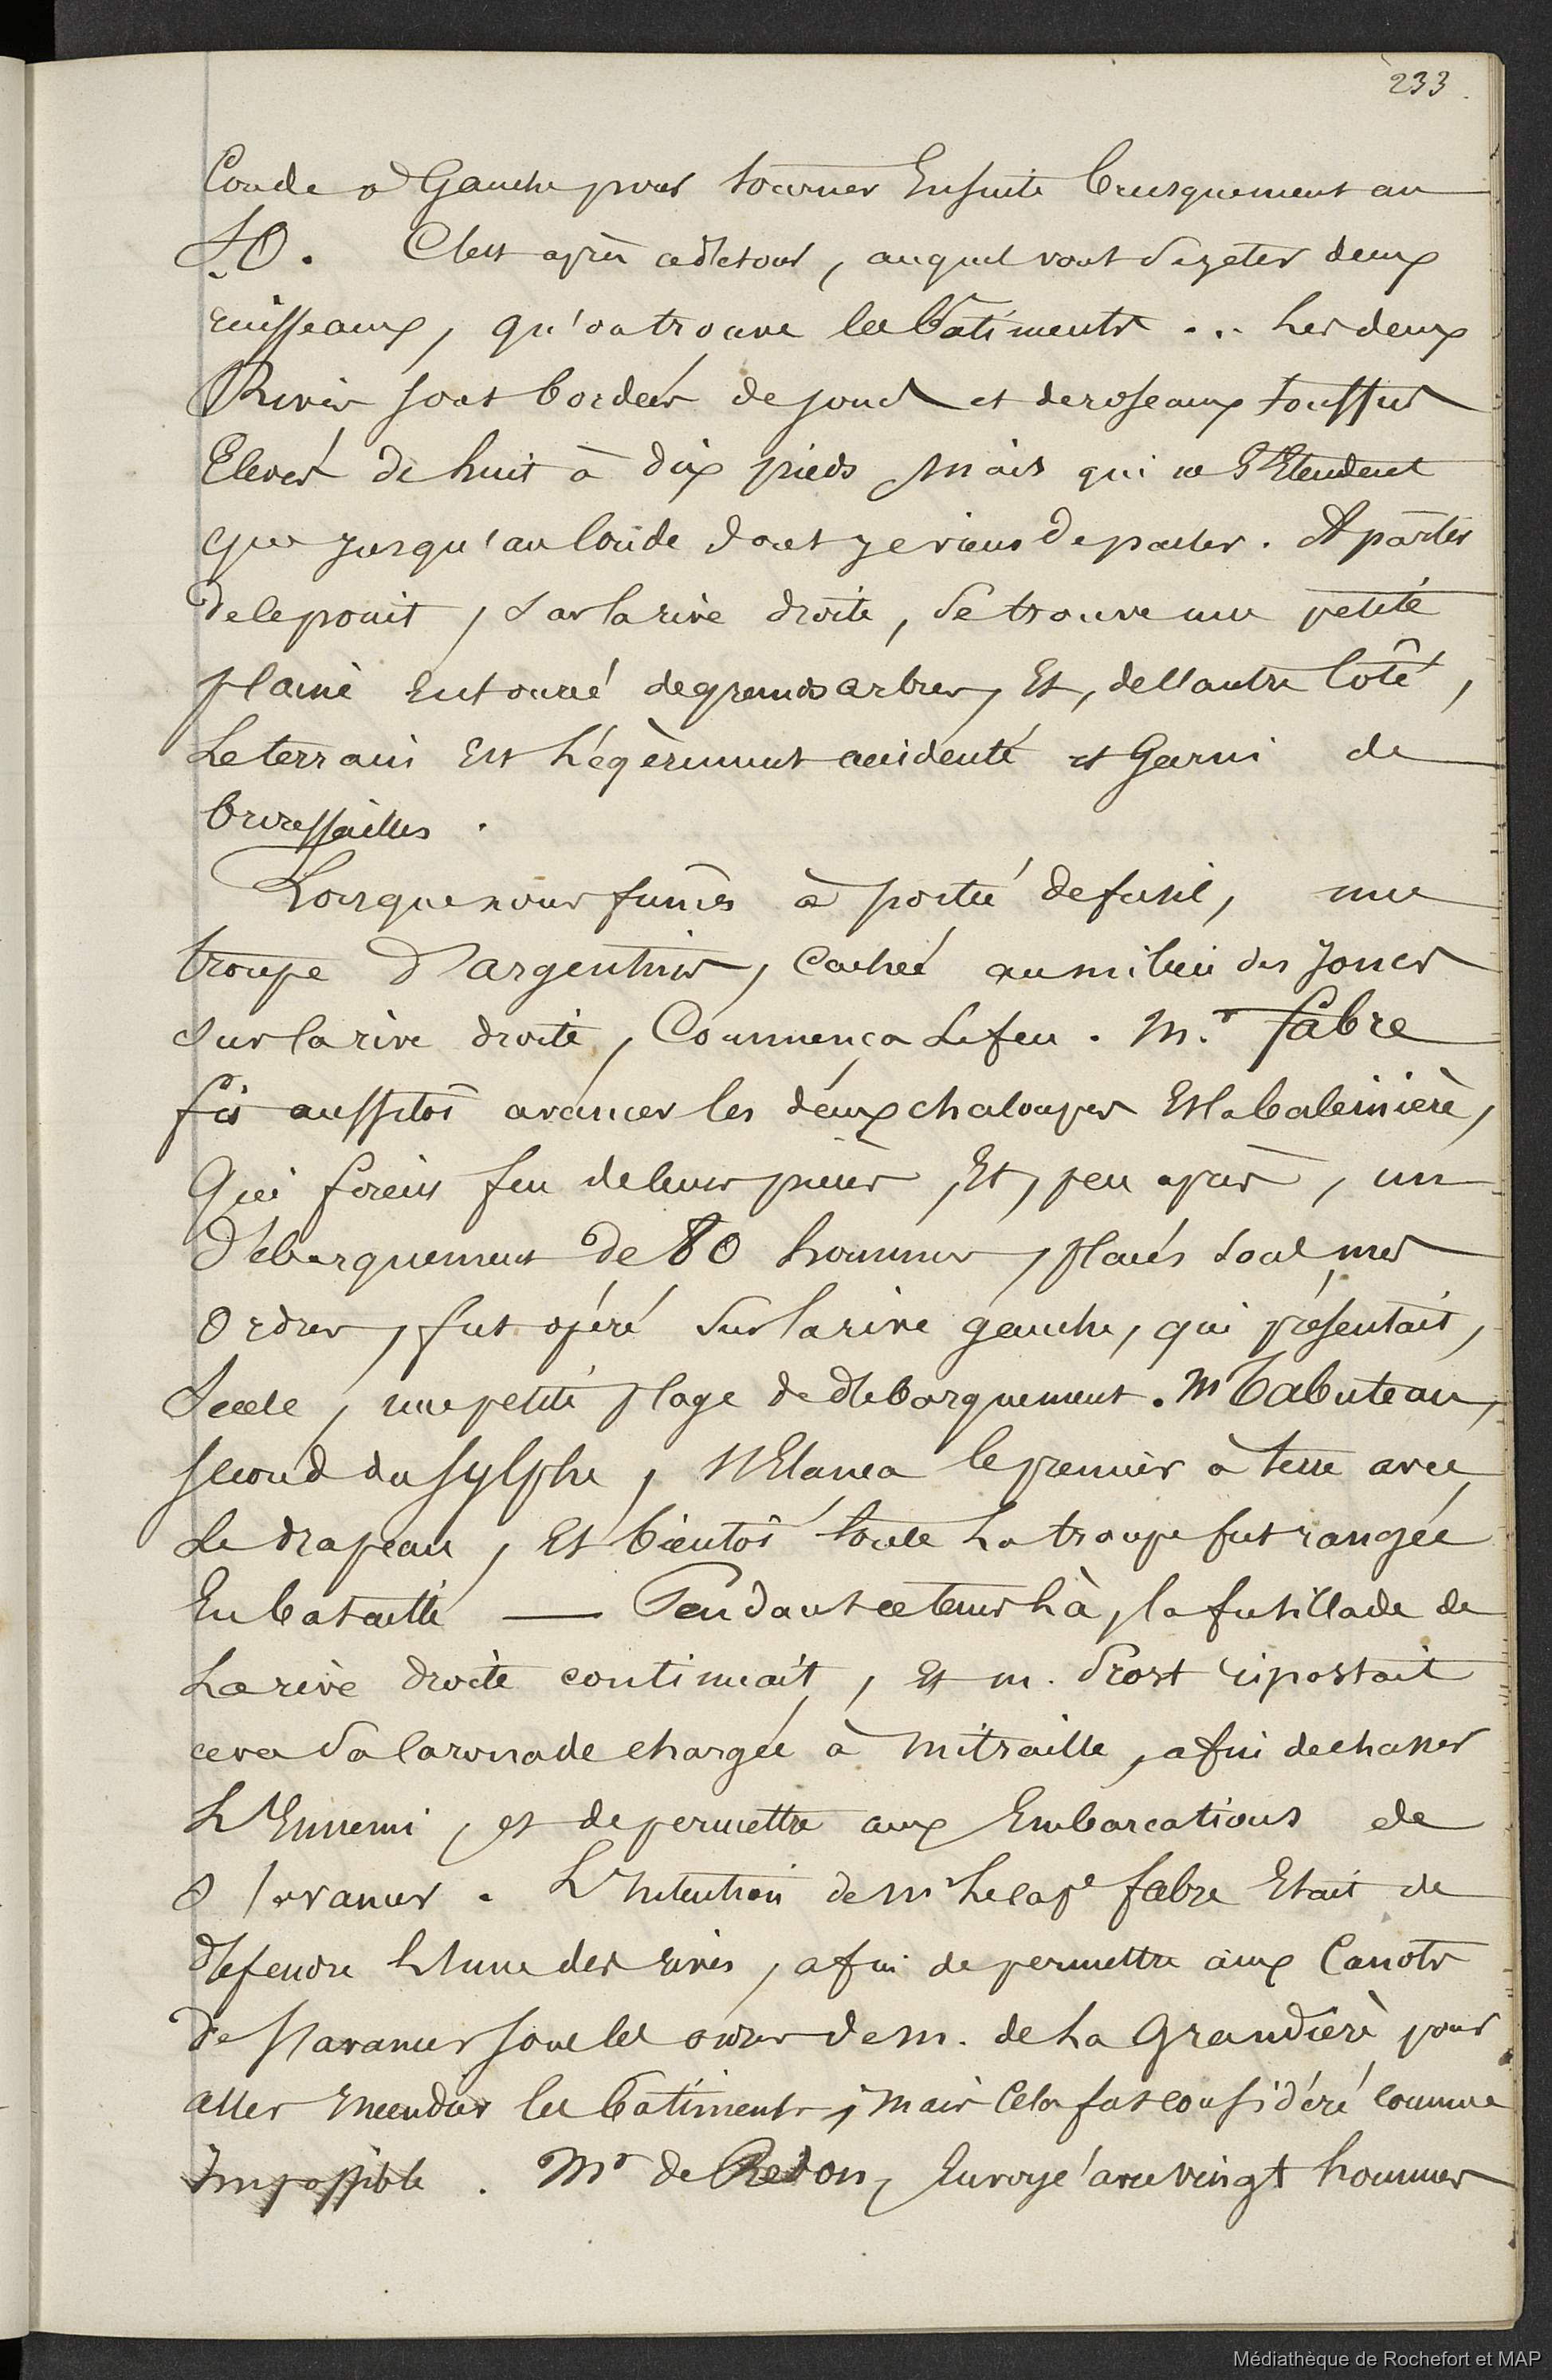 233
Coude à Gauche pour tourner Ensuite brusquement au
S.O. C'est après ce détour, auquel vont se jeter deux
ruisseaux, qu'on trouve les bâtiments ... Les deux
Rives sont bordées de joncs et de roseaux touffus
Elevés de huit à dix pieds mais qui ne s'Etendent
que jusqu'au Coude dont je viens de parler. A partir
de ce point, sur la rive droite, se trouve une petite
plaine entourée de grands arbres, Et, de l'autre Côté,
Le terrain Est Légèrement accidenté et Garni de
broussailles.
Lorsque nous fumes à portée de fusil, une
troupe d'argentins, Cachée au milieu des joncs
sur la rive droite, Commença Le feu. Mr fabre
fit aussitôt avancer les deux chaloupes Et la baleinière,
Qui firent feu de leurs pièces, Et, peu après, un
débarquement de 80 hommes, placés sous mes
Ordres, fut opéré sur la rive gauche, qui présentait,
Seule, une petite plage de débarquement. Mr Tabuteau,
second du Sylphe, s'Elança le premier à terre avec
Le drapeau, Et bientôt toute La troupe fut rangée
En bataille — Pendant ce tems Là, la fusillade de
La rive droite continuait, Et m. Prost ripostait
avec sa Caronade chargée à mitraille, afin de chasser
L'Ennemi, et de permettre aux Embarcations de
s'avancer. L'Intention de Mr Le cape fabre Etait de
défendre L'une des rives, afin de permettre aux Canots
de s'avancer sous les ordres de m. de La Grandière pour
aller Incendier les bâtiments, mais Cela fut considéré comme
Impossible. Mr de Redon, Envoyé avec vingt hommes
Médiathèque de Rochefort et MAP